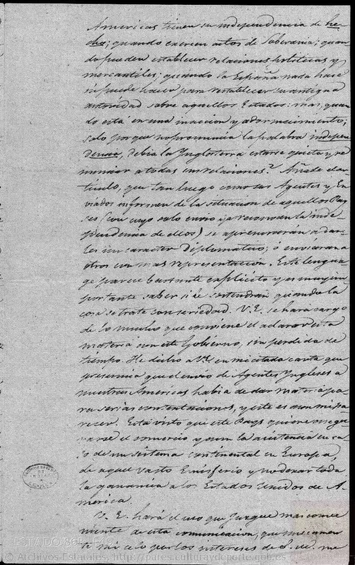 Americas tienen su independencia de he-
cho; quando exercen actos de Soberania; quan-
do pueden establecer relaciones politicas y
mercantiles; quando la España nada hace
ni puede hacer para restablecer su antigua
autoridad sobre aquellos Estados: mas quan-
do está en una inaccion y adormecimiento;
solo porque no pronuncia la palabra indepen-
dencia, debia la Inglaterra estarse quieta y re-
nunciar a todas sus relaciones? Añade el ar-
ticulo, que tan luego como sus Agentes y En-
viados informen de la situacion de aquellos Pay-
ses (con cuyo solo envio se reconoce la inde-
pendencia de ellos) se apresurarán a dar-
les un caracter Diplomatico; ó enviaran a
otros con mas representacion. Este lengua-
ge parece bastante explicito y es muy im-
portante saber si se contendrán quando la
cosa se trate con seriedad. V.E. se hará cargo
de lo mucho que conviene el aclarar esta
materia con este Gobierno, sin perdida de
tiempo. He dicho a V.E. en mi citada carta que
presumia que el envio de Agentes Ingleses a
nuestras Americas habia de dar materia pa-
ra serias contestaciones, y este es aun mi pa-
recer. Está visto que este Pays quiere asegu-
rarse el comercio y aun la asistencia en ca-
so de un sistema continental en Europa,
de aquel vasto Emisferio y no dexar toda
la ganancia a los Estados Unidos de A-
merica.
V.E. hará el uso que juzgue mas conve-
niente de esta comunicacion, que me